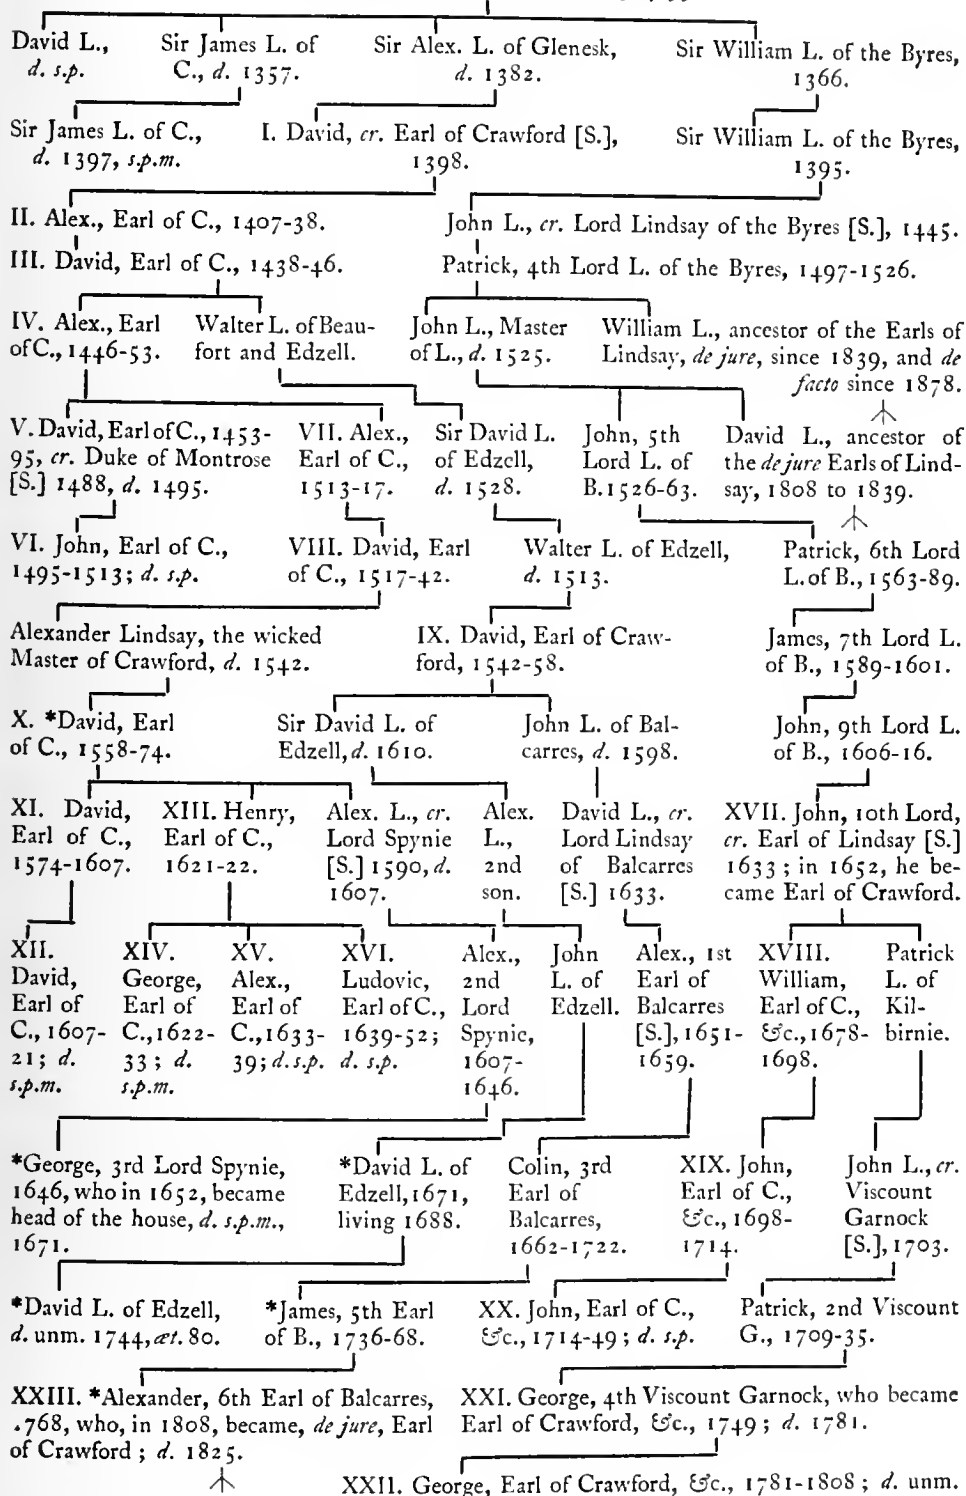 David L.,
d. s.p.
Sir James L. of
C., d. 1357.
Sir Alex. L. of Glenesk,
d. 1382.
Sir William L. of the Byres,
1366.
Sir James L. of C.,
d. 1397, s.p.m.
I. David, cr. Earl of Crawford [S.],
1398.
Sir William L. of the Byres,
1395.
II. Alex., Earl of C., 1407-38.
John L., cr. Lord Lindsay of the Byres [S.], 1445.
III. David, Earl of C., 1438-46.
Patrick, 4th Lord L. of the Byres, 1497-1526.
IV. Alex., Earl
of C., 1446-53.
Walter L. of Beau-
fort and Edzell.
John L., Master
of L., d. 1525.
William L., ancestor of the Earls of
Lindsay, de jure, since 1839, and de
facto since 1878.
V. David, Earl of C., 1453-
95, cr. Duke of Montrose
[S.] 1488, d. 1495.
VII. Alex.,
Earl of C.,
1513-17.
Sir David L.
of Edzell,
d. 1528.
John, 5th
Lord L. of
B. 1526-63.
David L., ancestor of
the de jure Earls of Lind-
say, 1808 to 1839.
VI. John, Earl of C.,
1495-1513; d. s.p.
VIII. David, Earl
of C., 1517-42.
Walter L. of Edzell,
d. 1513.
Patrick, 6th Lord
L. of B., 1563-89.
Alexander Lindsay, the wicked
Master of Crawford, d. 1542.
IX. David, Earl of Craw-
ford, 1542-58.
James, 7th Lord L.
of B., 1589-1601.
X. *David, Earl
of C., 1558-74.
Sir David L. of
Edzell, d. 1610.
John L. of Bal-
carres, d. 1598.
John, 9th Lord L.
of B., 1606-16.
XI. David,
Earl of C.,
1574-1607.
XIII. Henry,
Earl of C.,
1621-22.
Alex. L., cr.
Lord Spynie
[S.] 1590, d.
1607.
Alex.
L.,
2nd
son.
David L., cr.
Lord Lindsay
of Balcarres
[S.] 1633.
XVII. John, 10th Lord,
cr. Earl of Lindsay [S.]
1633; in 1652, he be-
came Earl of Crawford.
XII.
David,
Earl of
C., 1607-
21; d.
s.p.m.
XIV.
George,
Earl of
C., 1622-
33; d.
s.p.m.
XV.
Alex.,
Earl of
C., 1633-
39; d. s.p.
XVI.
Ludovic,
Earl of C.,
1639-52;
d. s.p.
Alex.,
2nd
Lord
Spynie,
1607-
1646.
John
L. of
Edzell.
Alex., 1st
Earl of
Balcarres
[S.], 1651-
1659.
XVIII.
William,
Earl of C.,
&c., 1678-
1698.
Patrick
L. of
Kil-
birnie.
*George, 3rd Lord Spynie,
1646, who in 1652, became
head of the house, d. s.p.m.,
1671.
*David L. of
Edzell, 1671,
living 1688.
Colin, 3rd
Earl of
Balcarres,
1662-1722.
XIX. John,
Earl of C.,
&c., 1698-
1714.
John L., cr.
Viscount
Garnock
[S.], 1703.
*David L. of Edzell,
d. unm. 1744, æt. 80.
*James, 5th Earl
of B., 1736-68.
XX. John, Earl of C.,
&c., 1714-49; d. s.p.
Patrick, 2nd Viscount
G., 1709-35.
XXIII. *Alexander, 6th Earl of Balcarres,
.768, who, in 1808, became, de jure, Earl
of Crawford; d. 1825.
XXI. George, 4th Viscount Garnock, who became
Earl of Crawford, &c., 1749; d. 1781.
XXII. George, Earl of Crawford, &c., 1781-1808; d. unm.